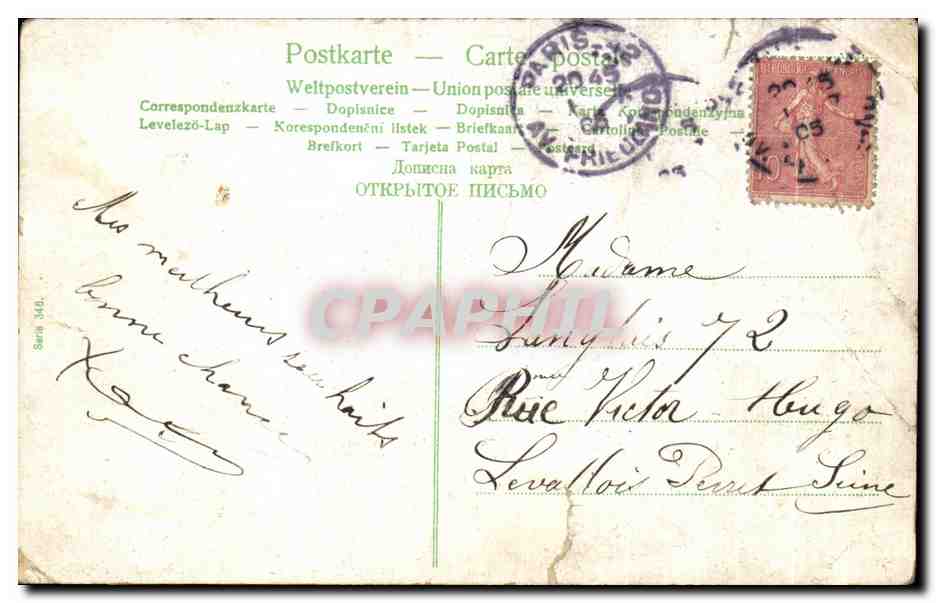 Postkarte — Carte postale
Weltpostverein — Union postale universelle
Correspondenzkarte — Dopisnice — Dopisnica — Karta Korespondenzyjna
Levelező-Lap — Korespondenční listek — Briefkaart — Cartolina Postale —
Brefkort — Tarjeta Postal — Postcard
Дописна карта
ОТКРЫТОЕ ПИСЬМО
PARIS
20 45
05
AV. FRIEDLAND
20 45
05
Mes meilleurs souhaits
bonne chance
Serie 346.
CPAPHIL
Madame
Langlois 72
Rue Victor Hugo
Levallois Perret Seine